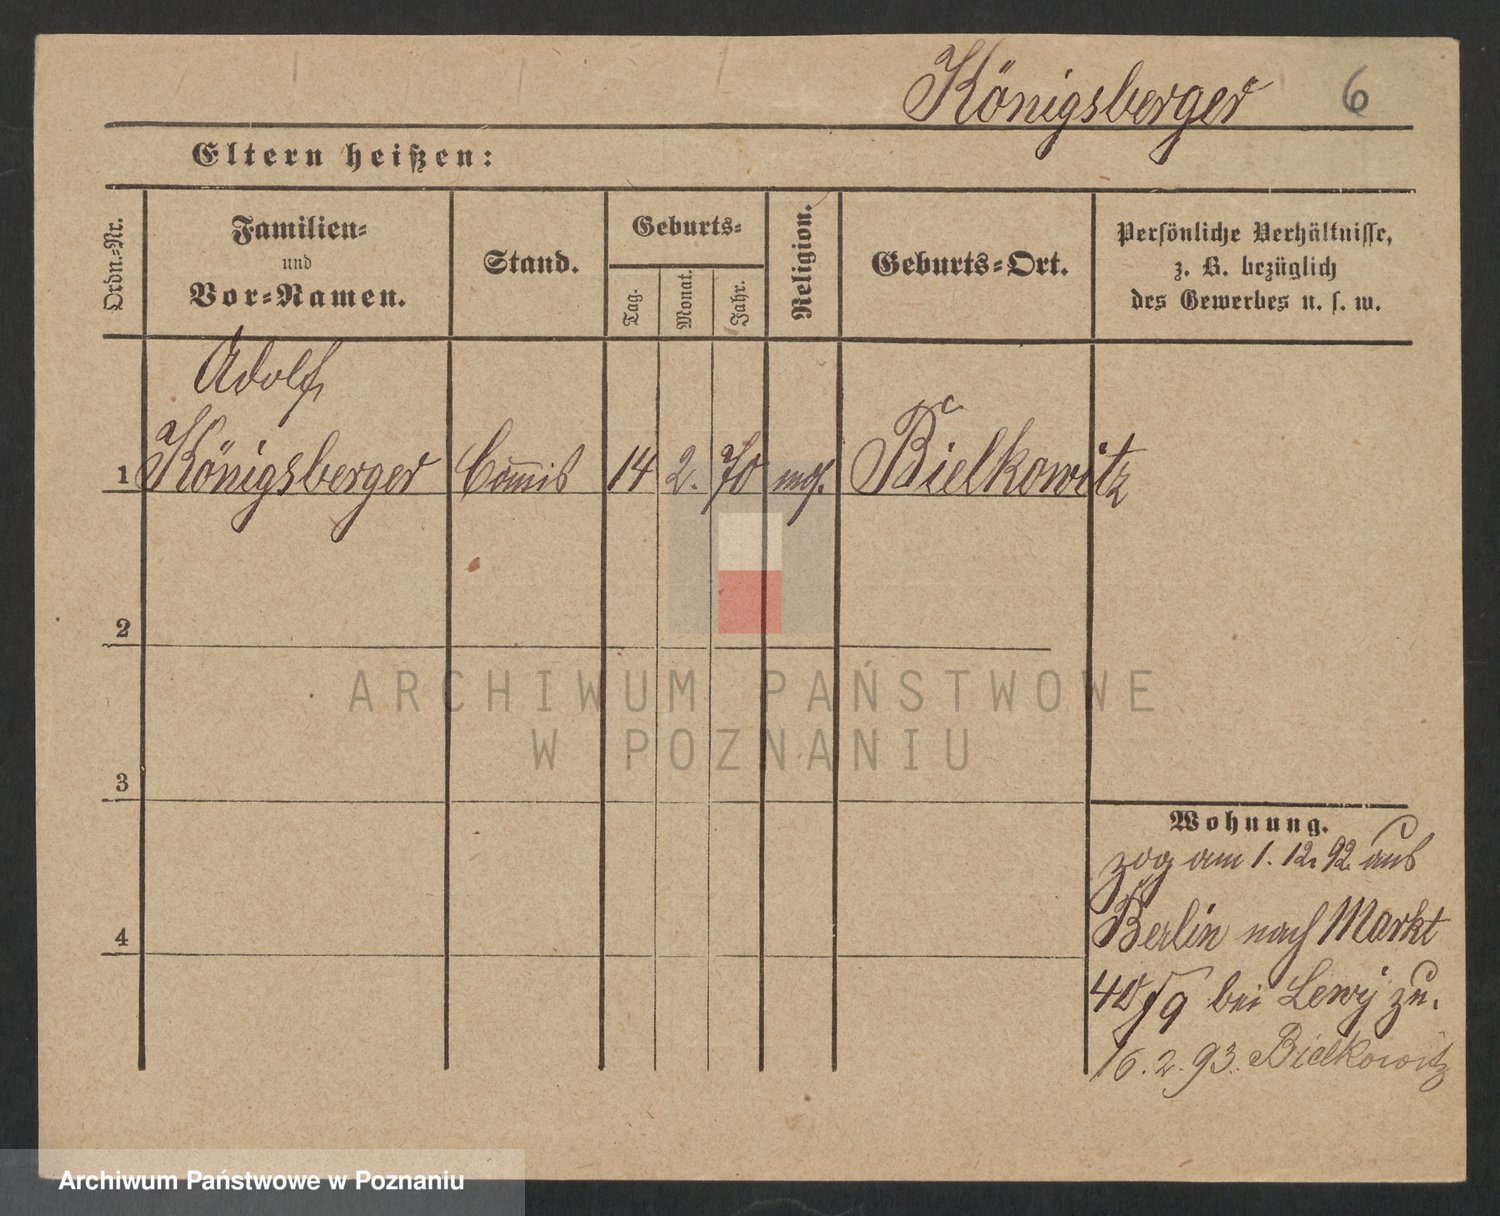 Königsberger 6
Eltern heißen:
Ordn.-Nr.
Familien-
und
Vor-Namen.
Stand.
Geburts-
Tag.
Monat.
Jahr.
Religion.
Geburts-Ort.
Persönliche Verhältnisse,
z. B. bezüglich
des Gewerbes u. s. w.
Adolf
1 Königsberger Commis 14 2. 70 mos. Bielkowitz
2
3
4
Wohnung.
zog am 1. 12. 92. aus
Berlin nach Markt
40/9 bei Lewy zu.
16. 2. 93. Bielkowitz
ARCHIWUM PAŃSTWOWE
W POZNANIU
Archiwum Państwowe w Poznaniu